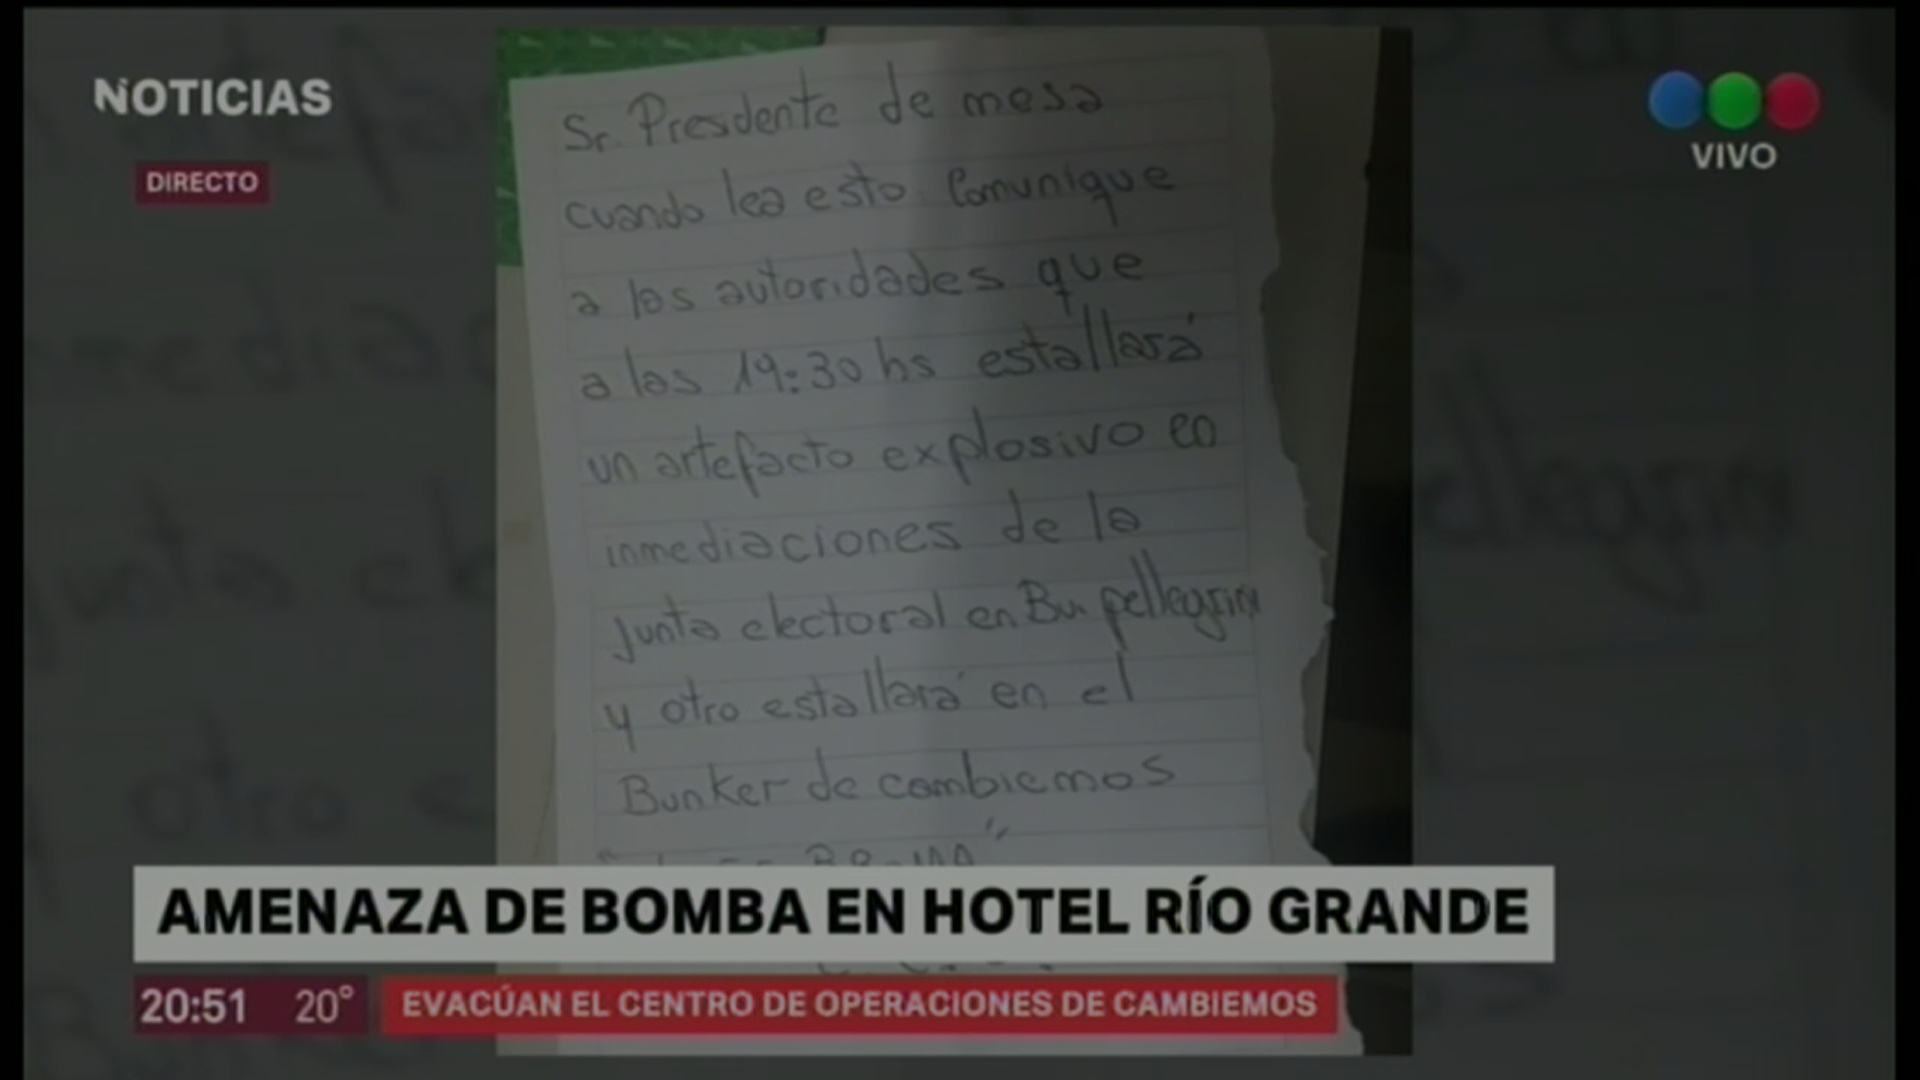 NOTICIAS
DIRECTO
VIVO
Sr. Presdente de mesa
cuando lea esto. Comunique
a las autoridades que
a las 19:30 hs estallará
un artefacto explosivo en
inmediaciones de la
junta electoral en Bu pellegrini
y otro estallará en el
Bunker de cambiemos
AMENAZA DE BOMBA EN HOTEL RÍO GRANDE
20:51 20°
EVACÚAN EL CENTRO DE OPERACIONES DE CAMBIEMOS